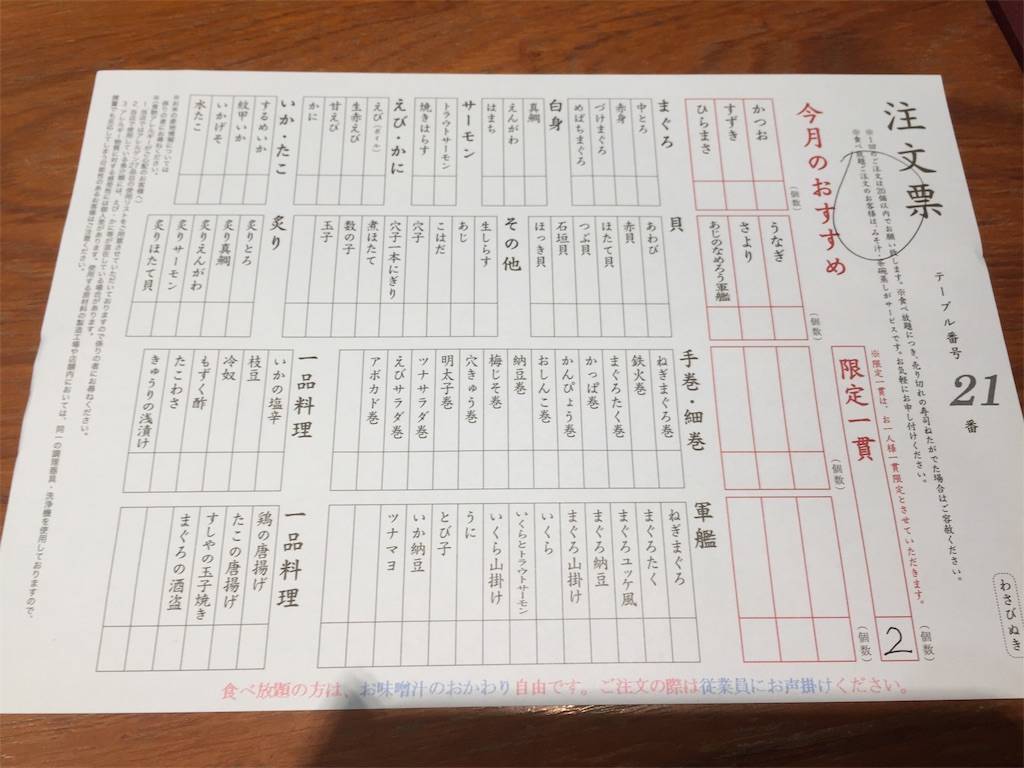 注文票
※一回のご注文は20個以内でお願い致します。※食べ放題につき、売り切れの寿司ねたがでた場合はご容赦ください。
※食べ放題ご注文のお客様は、みそ汁・茶碗蒸しがサービスです。お気軽にお申し付けください。
テーブル番号 21 番
わさびぬき
今月のおすすめ
かつお
すずき
ひらまさ
(個数)
うなぎ
さより
あじのなめろう軍艦
(個数)
限定一貫
※限定一貫は、お一人様一貫限定とさせていただきます。
(個数)
(個数)
(個数)
2
まぐろ
中とろ
赤身
づけまぐろ
めばちまぐろ
白身
真鯛
えんがわ
はまち
サーモン
トラウトサーモン
焼きはらす
えび・かに
えび(ボイル)
生赤えび
甘えび
かに
いか・たこ
するめいか
紋甲いか
いかげそ
水たこ
貝
あわび
赤貝
ほたて貝
つぶ貝
石垣貝
ほっき貝
その他
生しらす
あじ
こはだ
穴子
穴子一本にぎり
煮ほたて
数の子
玉子
炙り
炙りとろ
炙り真鯛
炙りえんがわ
炙りサーモン
炙りほたて貝
手巻・細巻
ねぎまぐろ巻
鉄火巻
まぐろたく巻
かっぱ巻
かんぴょう巻
おしんこ巻
納豆巻
梅じそ巻
穴きゅう巻
明太子巻
ツナサラダ巻
えびサラダ巻
アボカド巻
一品料理
いかの塩辛
枝豆
冷奴
もずく酢
たこわさ
きゅうりの浅漬け
軍艦
ねぎまぐろ
まぐろたく
まぐろユッケ風
まぐろ納豆
まぐろ山掛け
いくら
いくらとトラウトサーモン
いくら山掛け
うに
とび子
いか納豆
ツナマヨ
一品料理
鶏の唐揚げ
たこの唐揚げ
すしやの玉子焼き
まぐろの酒盗
食べ放題の方は、お味噌汁のおかわり自由です。ご注文の際は従業員にお声掛けください。